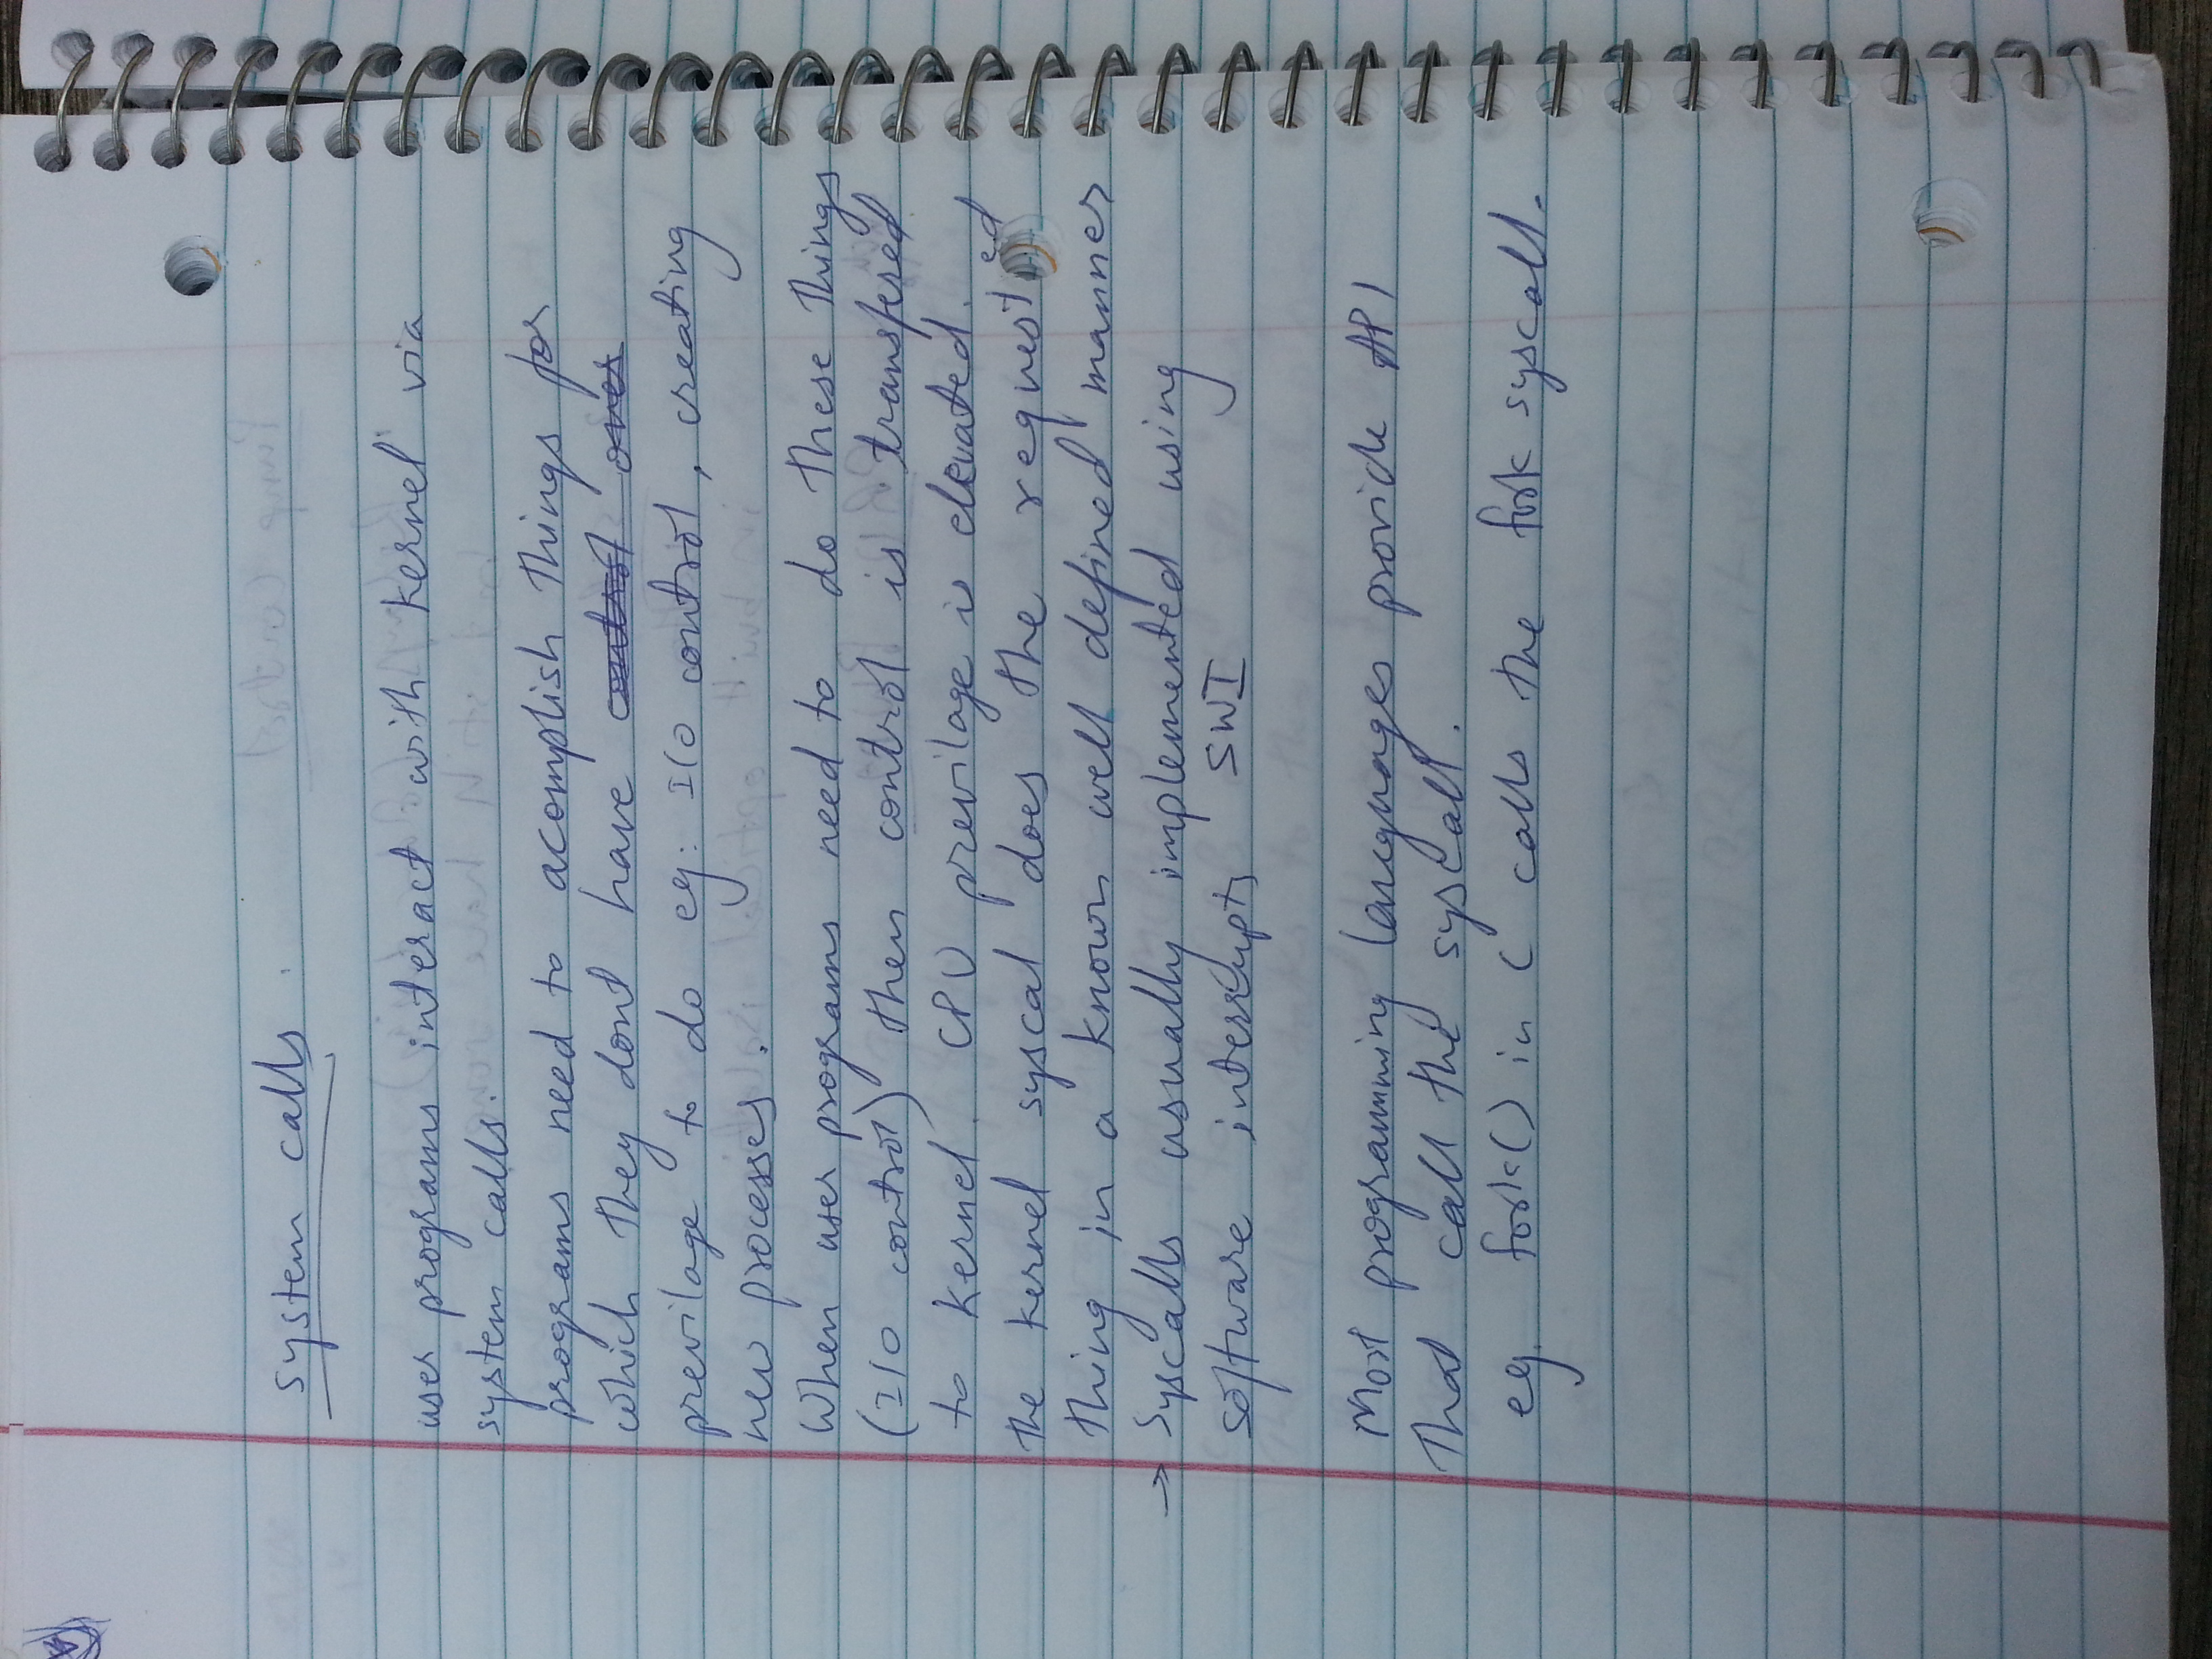 system calls
user programs interact with kernel via
system calls.
programs need to acomplish things for
which they dont have control over
previlage to do eg: I/O control, creating
new processes.
When user programs need to do these things
(I/O control) then control is transfered
to kernel. CPU previlage is elevated.
the kernel syscal does the requested
thing in a known well defined manner
→ Syscalls usually implemented using
software interrupts SWI
Most programming languages provide API
that call the syscall.
eg. fork() in C calls the fork syscall.